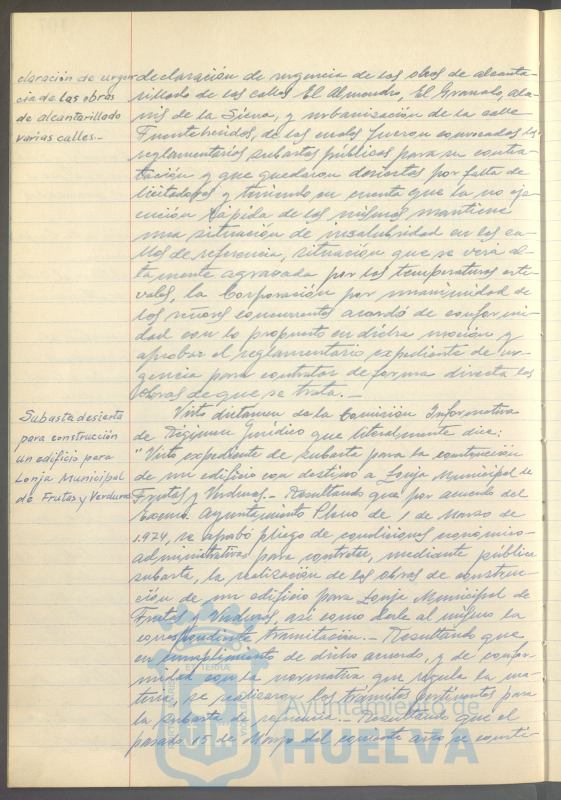 claración de urgen
cia de las obras
de alcantarillado
varias calles.-
declaración de urgencia de las obras de alcanta-
rillado de las calles El Almendro, El Granado, Ala-
nis de la Sierra, y urbanización de la calle
Fuenteheridos, de las cuales fueron convocadas las
reglamentarias subastas públicas para su contra-
tación y que quedaron desiertas por falta de
licitadores y teniendo en cuenta que la no eje-
cución rápida de las mismas mantiene
una situación de insalubridad en las ca-
lles de referencia, situación que se verá al-
tamente agravada por las temperaturas esti-
vales, la Corporación por unanimidad de
los señores concurrentes acordó de conformi-
dad con lo propuesto en dicha moción y
aprobar el reglamentario expediente de ur-
gencia para contratar de forma directa las
obras de que se trata.-
Subasta desierta
para construcción
un edificio para
Lonja Municipal
de Frutas y Verduras
Visto dictamen de la Comisión Informativa
de Régimen Jurídico que literalmente dice:
"Visto expediente de subasta para la contrucción
de un edificio con destino a Lonja Municipal de
Frutas y Verduras.- Resultando que por acuerdo del
Excmo. Ayuntamiento Pleno de 1 de Marzo de
1.974, se aprobó pliego de condiciones económico-
administrativas para contratar, mediante pública
subasta, la realización de las obras de construc-
ción de un edificio para Lonja Municipal de
Frutas y Verduras, así como darle al mismo la
correspondiente tramitación.- Resultando que
en cumplimiento de dicho acuerdo, y de confor-
midad con la normativa que regula la ma-
teria, se realizaron los trámites pertinentes para
la subasta de referencia.- Resultando que el
pasado 15 de Mayo del corriente año se consti-
Ayuntamiento de
HUELVA